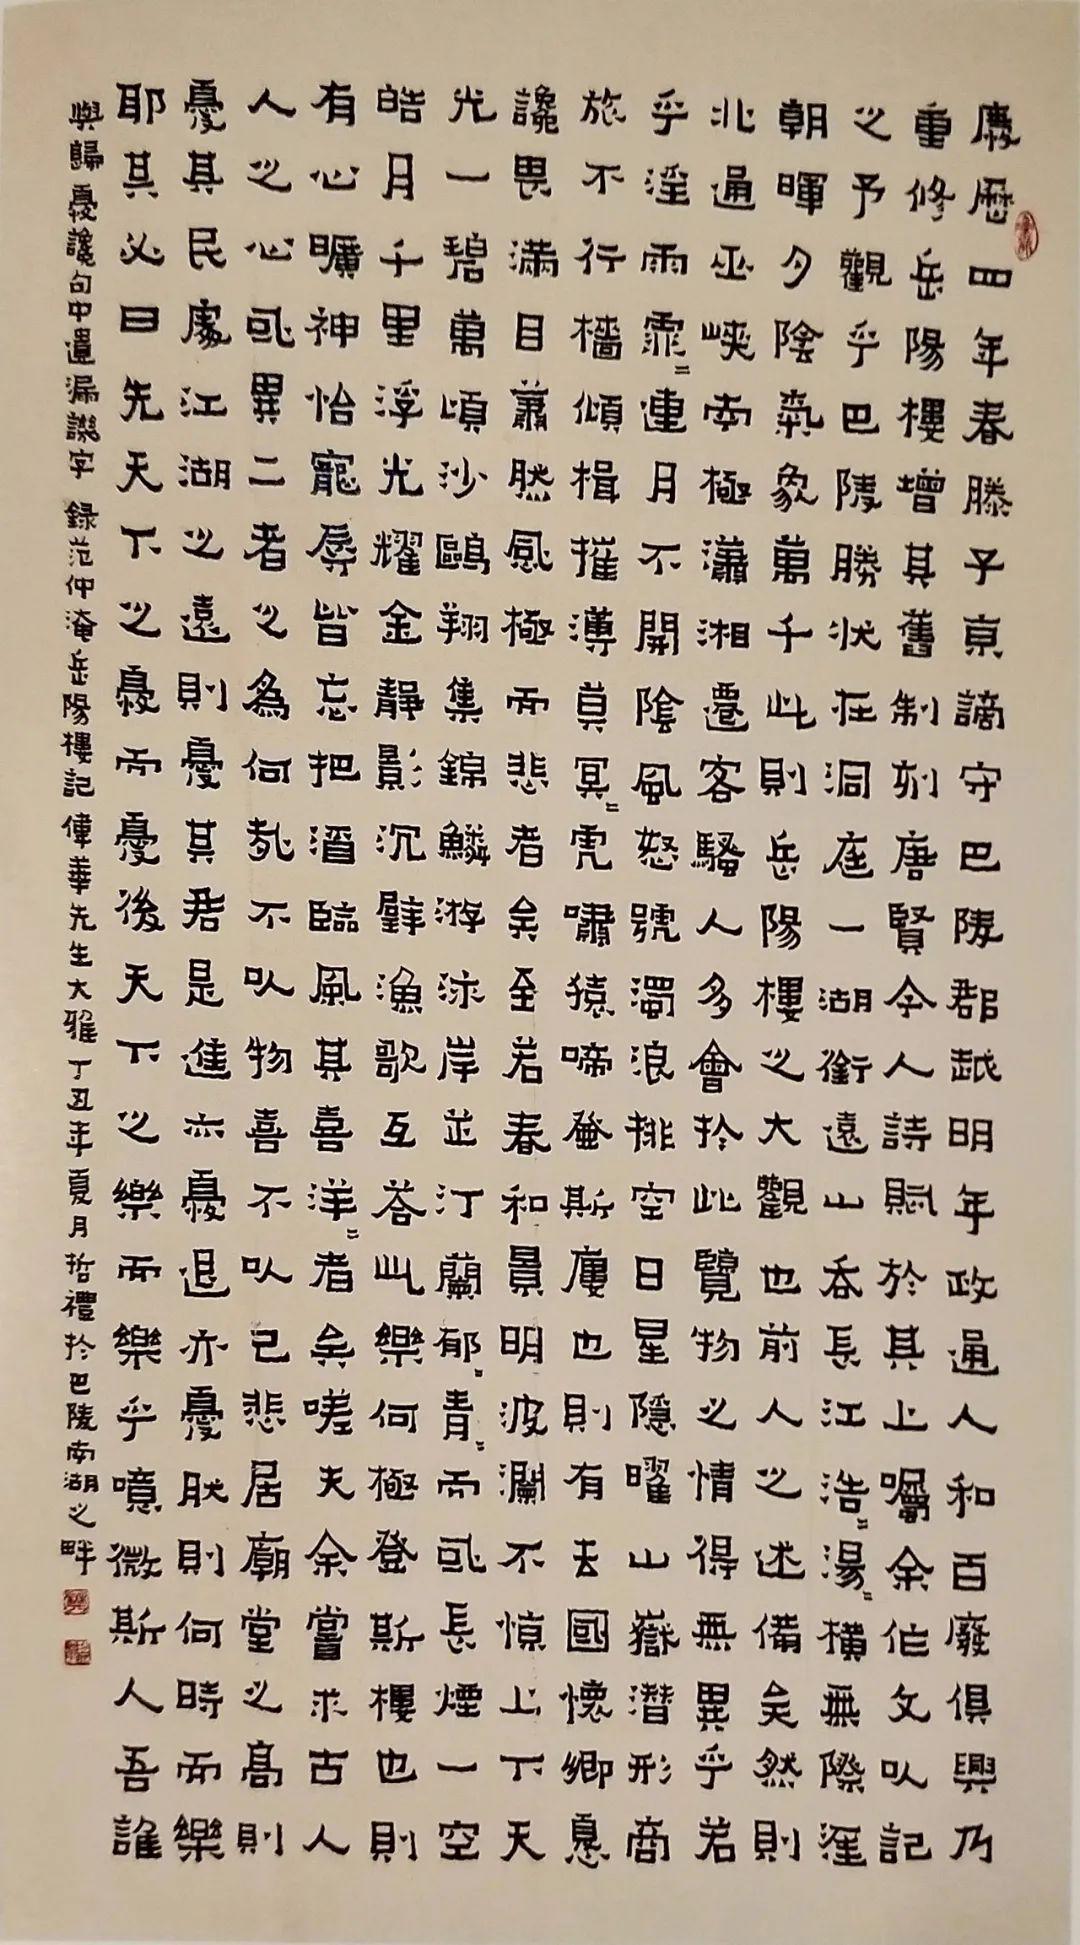 慶歷四年春滕子京謫守巴陵郡越明年政通人和百廢俱興乃
重修岳陽樓增其舊制刻唐賢今人詩賦於其上囑余作文以記
之予觀乎巴陵勝狀在洞庭一湖銜遠山吞長江浩〻湯〻橫無際涯
朝暉夕陰氣象萬千此則岳陽樓之大觀也前人之述備矣然則
北通巫峽南極瀟湘遷客騷人多會於此覽物之情得無異乎若
乎淫雨霏〻連月不開陰風怒號濁浪排空日星隱曜山嶽潛形商
旅不行檣傾楫摧薄莫冥〻虎嘯猿啼登斯廔也則有去國懷鄉憂
讒畏滿目蕭然感極而悲者矣至若春和景明波瀾不驚上下天
光一碧萬頃沙鷗翔集錦鱗游泳岸芷汀蘭郁〻青〻而或長煙一空
皓月千里浮光耀金靜影沉璧漁歌互答此樂何極登斯樓也則
有心曠神怡寵辱皆忘把酒臨風其喜洋〻者矣嗟夫余嘗求古人
人之心或異二者之為何哉不以物喜不以己悲居廟堂之高則
憂其民處江湖之遠則憂其君是進亦憂退亦憂然則何時而樂
耶其必曰先天下之憂而憂後天下之樂而樂乎噫微斯人吾誰
與歸 憂讒句中遺漏譏字 錄范仲淹岳陽樓記 偉華先生大雅 丁丑年夏月哲禮於巴陵南湖之畔